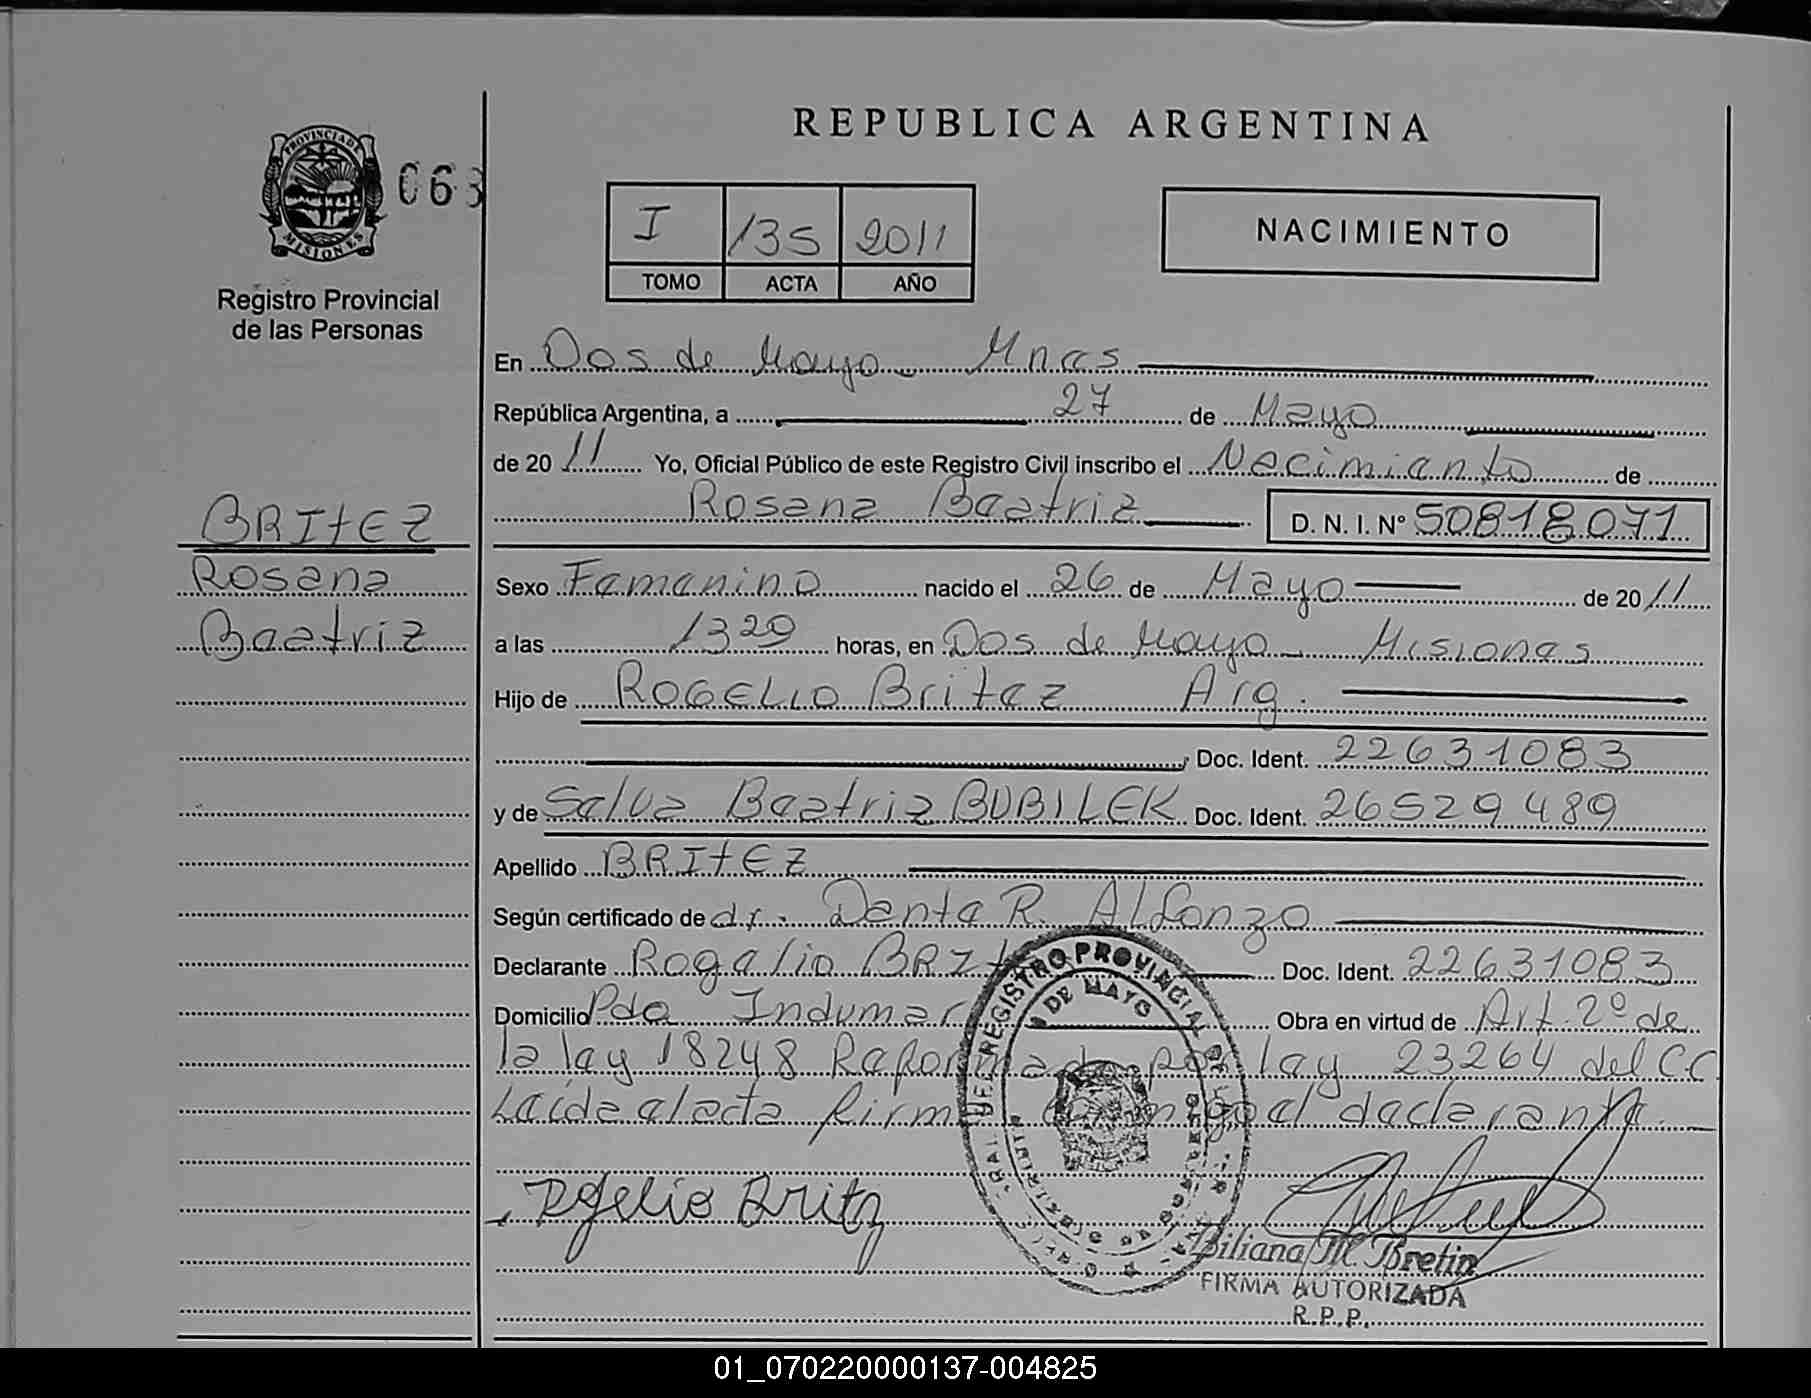 PROVINCIA DE
MISIONES
063
Registro Provincial
de las Personas
REPUBLICA ARGENTINA
I 135 2011
TOMO ACTA AÑO
NACIMIENTO
En Dos de Mayo Mnes
República Argentina, a 27 de Mayo
de 2011 Yo, Oficial Público de este Registro Civil inscribo el Nacimiento de
Rosana Beatriz D. N. I. Nº 50818071
BRITEZ
Rosana
Beatriz
Sexo Femenino nacido el 26 de Mayo de 2011
a las 1320 horas, en Dos de Mayo Misiones
Hijo de ROGELIO Britez Arg.
Doc. Ident. 22631083
y de Selva Beatriz BUBILEK Doc. Ident. 26529489
Apellido BRITEZ
Según certificado de dr. Dante R. Alfonzo
Declarante Rogelio Doc. Ident. 22631083
Domicilio Pdo Indumar Obra en virtud de Art. 2º de
la ley 18248 Reformada por ley 23264 del CC
Leída el acta firma el declarante.
REGISTRO PROVINCIAL DE
DE MAYO
Rogelio Britez
Biliana M. Bretin
FIRMA AUTORIZADA
R.P.P.
01_070220000137-004825